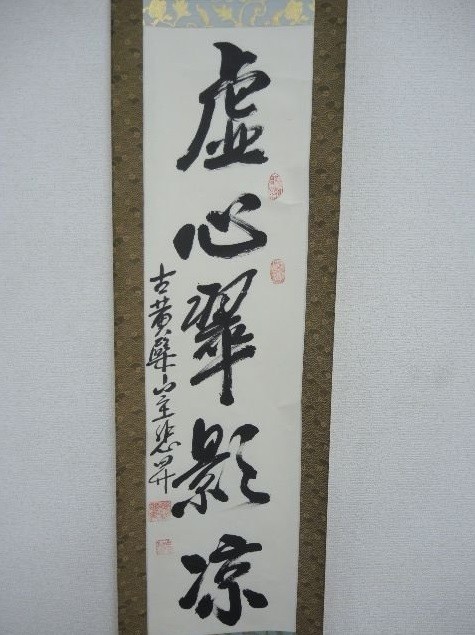 虚心翠影凉
古黄檗山主悲昇